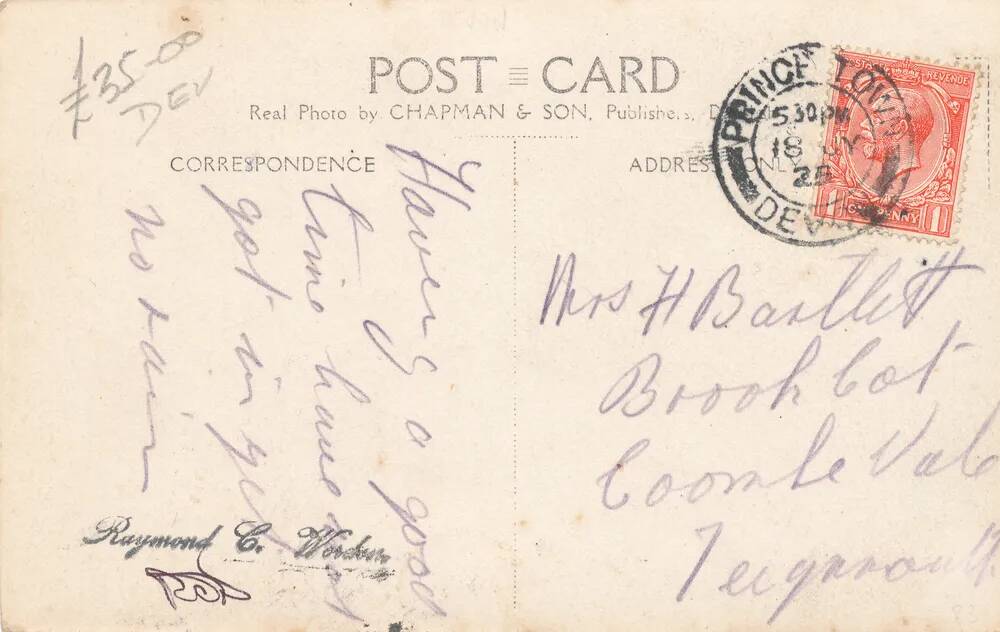 £35-00
DEV
POST CARD
Real Photo by CHAPMAN & SON, Publishers,
CORRESPONDENCE
ADDRESS ONLY
PRINCETOWN
5.30PM
18
28
DEVON
REVENUE
ONE PENNY
1 1
Having a good
time have not
got in yet
no rain
Mrs H Bartlett
Brook Cot
Coombe Vale
Teignmouth
Raymond C.